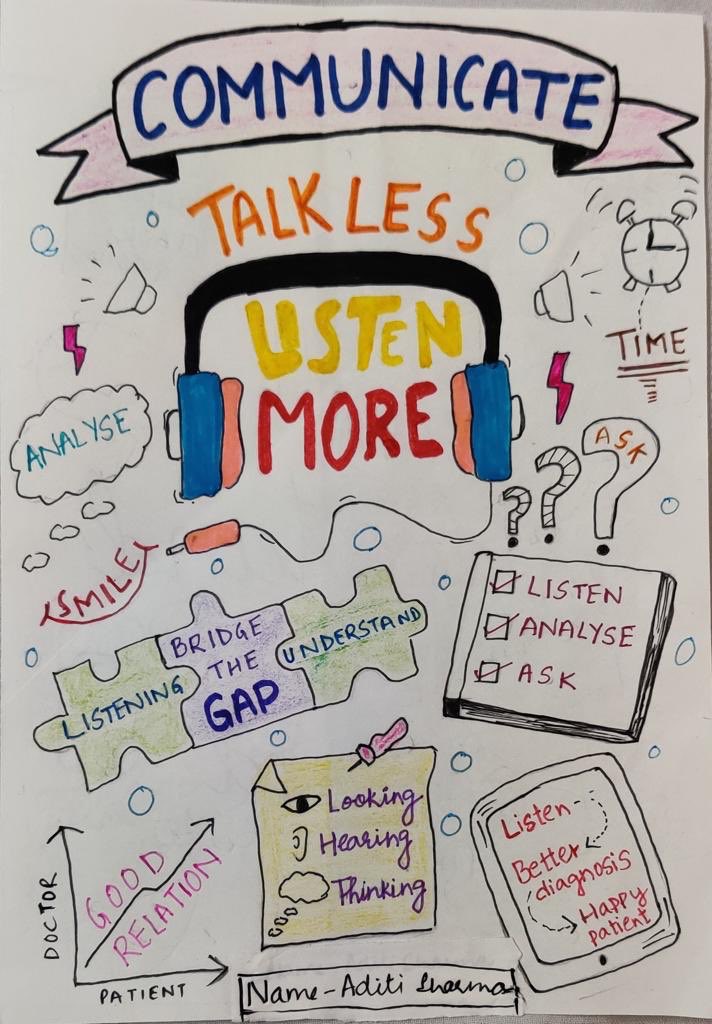 COMMUNICATE
TALK LESS
LISTEN
MORE
TIME
ANALYSE
ASK
SMILE
LISTENING
BRIDGE
THE
GAP
UNDERSTAND
LISTEN
ANALYSE
ASK
Looking
Hearing
Thinking
Listen
Better
diagnosis
Happy
patient
DOCTOR
GOOD
RELATION
PATIENT
Name-Aditi Sharma